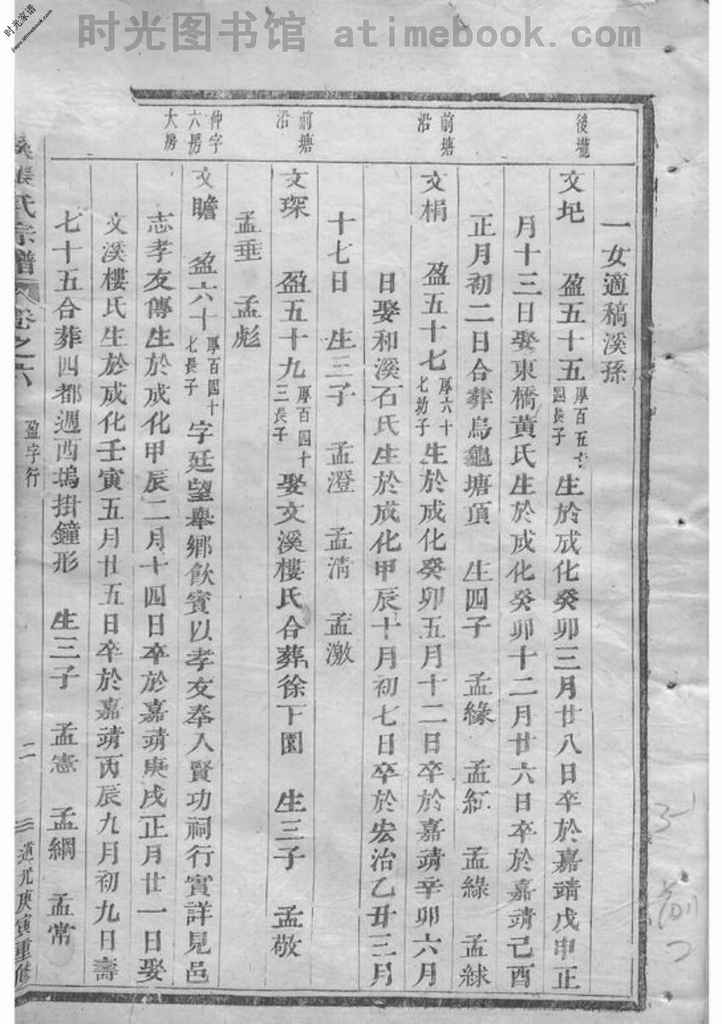 时光图书馆 atimebook.com
时光家谱
www.atimebook.com
一女適稿溪孫
後壠
文圯 盈五十五 厚百五十四長子 生於成化癸卯三月廿八日卒於嘉靖戊申正
月十三日娶東橋黃氏生於成化癸卯十二月廿六日卒於嘉靖己酉
正月初二日合葬烏龜塘頂 生四子 孟緣 孟紅 孟綠 孟絿
前塘沿
文桐 盈五十七 厚六十七幼子 生於成化癸卯五月十二日卒於嘉靖辛卯六月
日娶和溪石氏生於成化甲辰十月初七日卒於宏治乙丑三月
十七日 生三子 孟澄 孟淸 孟激
前塘沿
文琛 盈五十九 厚百四十三長子 娶文溪樓氏合葬徐下園 生三子 孟敬
孟垂 孟彪
仲字六房大房
文瞻 盈六十 厚百四十七長子 字廷望舉鄉飲賓以孝友奉入賢功祠行實詳見邑
志孝友傳生於成化甲辰二月十四日卒於嘉靖庚戌正月廿一日娶
文溪樓氏生於成化壬寅五月廿五日卒於嘉靖丙辰九月初九日壽
七十五合葬四都週西塢掛鐘形 生三子 孟憲 孟綱 孟常
氏宗譜 卷之六 盈字行 二 道光庚寅重修